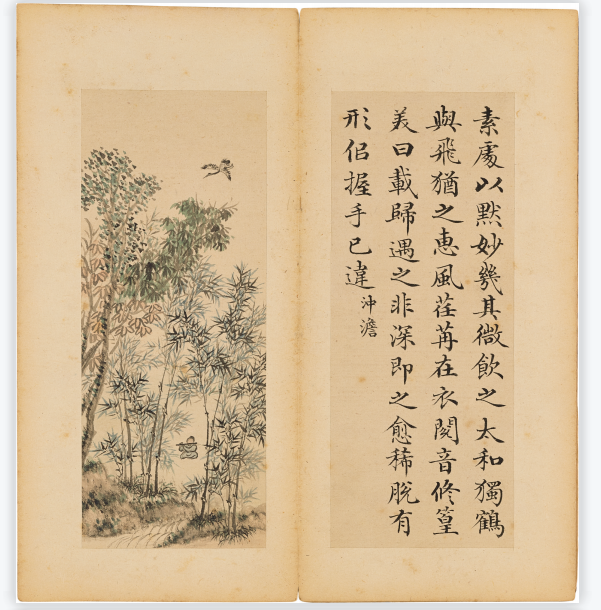 素處以默妙幾其微飲之太和獨鶴
與飛猶之恵風荏苒在衣閱音修篁
美曰載歸遇之非深即之愈稀脫有
形佀握手已違沖澹